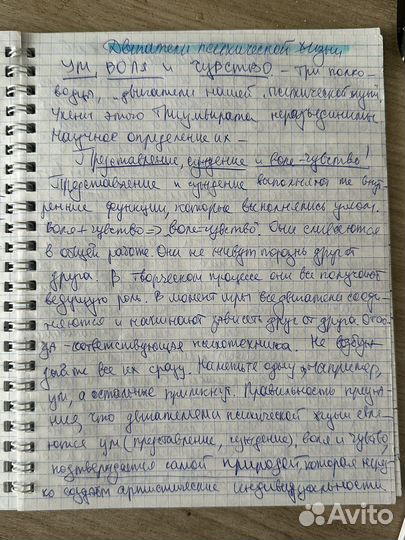 Двигатели психической жизни
Ум, воля и чувство – три полко-
водцы, – двигатели нашей психической жизни.
Члены этого Триумвирата неразъединимы
Научное определение их –
Представление, суждение и воле-чувство!
Представление и суждение выполняют те внут-
ренние функции, которые выполнялись умом.
Воля + чувство => воле-чувство. Они сливаются
в общей работе. Они не живут порознь друг от
друга. В творческом процессе они все получают
ведущую роль. В момент игры все двигатели соеди-
няются и начинают зависеть друг от друга. Отсю-
да – соответствующая психотехника. Не
все их сразу. Наметьте одну, например,
ум, а остальные примкнут. Правильность призна-
ния, что двигателями психической жизни явля-
ются ум (представление, суждение), воля и чувство,
подтверждается самой природой, которая неред-
ко создаёт артистические индивидуальности
Avito